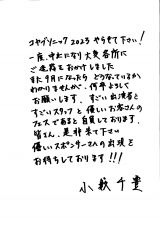 コヤブソニック2023 やらせて下さい!
一度、中止になり大変各所に
ご迷惑をおかけしました
また9月になったら どうなっているか
わかりませんが、何卒よろしく
お願いします。すごい出演者と
すごいスタッフと優しいお客さんの
フェスであると自負しております。
皆さん、是非来て下さい
優しいスポンサーさんの出現を
お待ちしております!!!
小籔千豊